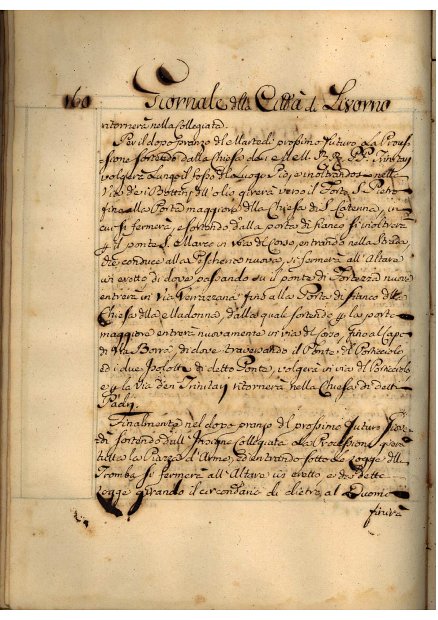 160 Giornale della Città di Livorno
ritornerà nella Collegiata.
Per il dopo pranzo di Martedì prossimo futuro La Proces
sione sortendo dalla Chiesa dei RR. PP. Trinitarj
volgerà Lungo il fosso, Luogo Pio, e inoltrandosi nella
Via dei Bottini dell'olio girerà verso il Forte S. Pietro
fino alla Porta maggiore della Chiesa di S. Caterina, in
cui si fermerà, e sortendo dalla porta di fianco si inoltrerà
p il ponte S. Marco in via del Corso, entrando nella Strada,
che conduce alla Peschería nuova, si fermerà all'Altare
ivi eretto di dove passando su il ponte di Fortezza nuova
entrerà in Via Venezzana fino alla Porta di fianco della
Chiesa della Madonna, dalla quale sortendo p la porta
maggiore entrerà nuovamente in via del Corso, fino a Capo
di Via Borra, di dove traversando il Ponte di
ed i due di detto Ponte, volgerà in via del
e p la Via dei Trinitarj ritornerà nella Chiesa di detti
Padri.
Finalmente nel dopo pranzo del prossimo futuro Giove
dì sortendo dall'Insigne Collegiata La Processione
tutta la Piazza d'Arme, ed entrando sotto le Logge della
Tromba si fermerà all'Altare ivi eretto e da dette
Logge girando il circondario di dietro al Duomo
finirà